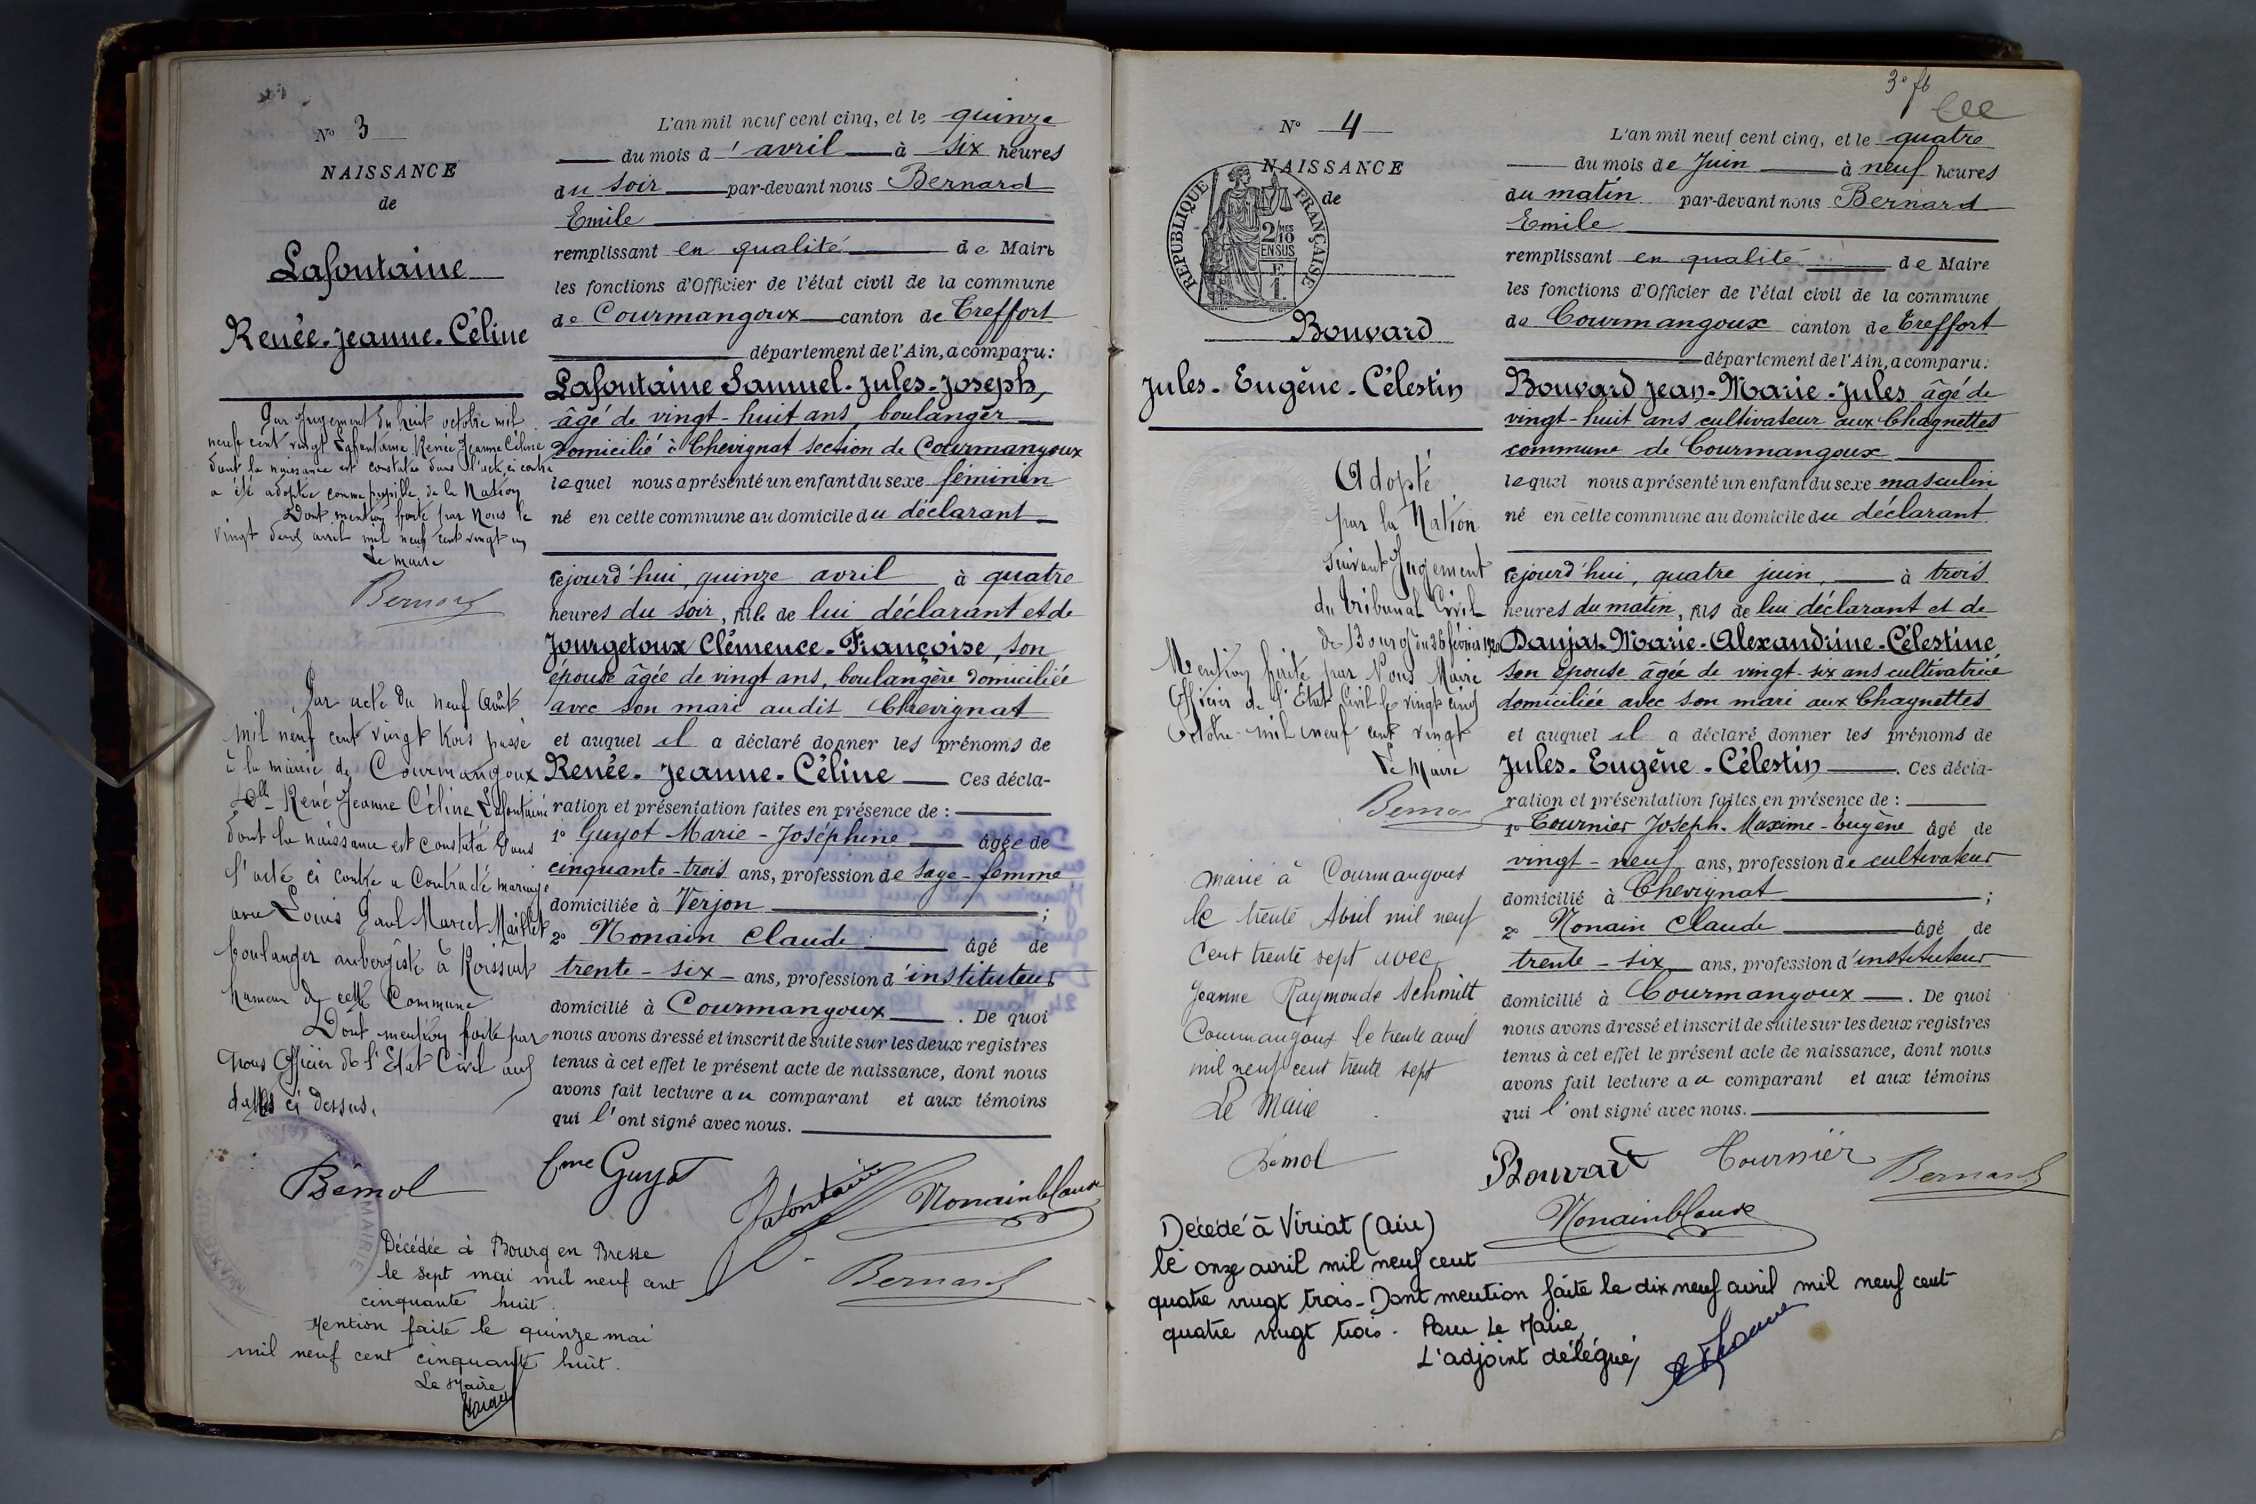 N° 3
NAISSANCE
de
Lafontaine
Renée-Jeanne-Céline
Par Jugement du huit octobre mil
neuf cent vingt Lafontaine Renée Jeanne Céline
dont la naissance est constatée dans l'acte ci contre
a été adoptée comme pupille de la Nation
Dont mention faite par Nous le
vingt deux avril mil neuf cent vingt un
Le maire
Bernard
Par acte du neuf Août
mil neuf cent vingt trois passé
à la mairie de Courmangoux
Dlle René Jeanne Céline Lafontaine
dont la naissance est constatée dans
l'acte ci contre a contracté mariage
avec Louis Paul Marcel Maillet
boulanger aubergiste à Roissiat
hameau de cette Commune
Dont mention faite par
Nous Officier de l'Etat Civil aux
dates ci dessus.
Bémol
MAIRIE
Décédée à Bourg en Bresse
le sept mai mil neuf cent
cinquante huit.
Mention faite le quinze mai
mil neuf cent cinquante huit.
Le Maire
L'an mil neuf cent cinq, et le quinze
du mois d'avril à six heures
du soir par-devant nous Bernard
Emile
remplissant en qualité de Maire
les fonctions d'Officier de l'état civil de la commune
de Courmangoux canton de Treffort
département de l'Ain, a comparu:
Lafontaine Samuel-Jules-Joseph,
âgé de vingt-huit ans, boulanger
domicilié à Chevignat section de Courmangoux
lequel nous a présenté un enfant du sexe féminin
né en cette commune au domicile du déclarant
cejourd'hui, quinze avril à quatre
heures du soir, fille de lui déclarant et de
Jourgetoux Clémence-Françoise, son
épouse âgée de vingt ans, boulangère domiciliée
avec son mari audit Chevignat
et auquel il a déclaré donner les prénoms de
Renée-Jeanne-Céline Ces décla-
ration et présentation faites en présence de :
1° Guyot Marie-Joséphine âgée de
cinquante-trois ans, profession de sage-femme
domiciliée à Verjon ;
2° Nonain Claude âgé de
trente-six ans, profession d'instituteur
domicilié à Courmangoux. De quoi
nous avons dressé et inscrit de suite sur les deux registres
tenus à cet effet le présent acte de naissance, dont nous
avons fait lecture au comparant et aux témoins
qui l'ont signé avec nous.
fme Guyot
Lafontaine
Nonain Claude
Bernard
3e f6
N° 4
NAISSANCE
de
REPUBLIQUE FRANÇAISE
2/10 MES
EN SUS
F
1.
Bouvard
Jules-Eugène-Célestin
Adopté
par la Nation
suivant Jugement
du tribunal Civil
de Bourg du 26 février 1920
Mention faite par Nous Maire
Officier de l'Etat Civil le vingt cinq
Octobre mil neuf cent vingt
Le Maire
Bernard
Marié à Courmangoux
le trente Avril mil neuf
cent trente sept avec
Jeanne Raymonde Schmitt
Courmangoux le trente avril
mil neuf cent trente sept
Le Maire
Bémol
Décédé à Viriat (Ain)
le onze avril mil neuf cent
quatre vingt trois - Dont mention faite le dix neuf avril mil neuf cent
quatre vingt trois. Pour Le Maire,
L'adjoint délégué,
L'an mil neuf cent cinq, et le quatre
du mois de Juin à neuf heures
du matin par-devant nous Bernard
Emile
remplissant en qualité de Maire
les fonctions d'Officier de l'état civil de la commune
de Courmangoux canton de Treffort
département de l'Ain, a comparu:
Bouvard Jean-Marie-Jules âgé de
vingt-huit ans cultivateur aux Chagnettes
commune de Courmangoux
lequel nous a présenté un enfant du sexe masculin
né en cette commune au domicile du déclarant
cejourd'hui, quatre juin, à trois
heures du matin, fils de lui déclarant et de
Danjat Marie-Alexandrine-Célestine
son épouse âgée de vingt-six ans cultivatrice
domiciliée avec son mari aux Chagnettes
et auquel il a déclaré donner les prénoms de
Jules-Eugène-Célestin. Ces décla-
ration et présentation faites en présence de :
1° Tournier Joseph-Maxime-Eugène âgé de
vingt-neuf ans, profession de cultivateur
domicilié à Chevignat ;
2° Nonain Claude âgé de
trente-six ans, profession d'instituteur
domicilié à Courmangoux. De quoi
nous avons dressé et inscrit de suite sur les deux registres
tenus à cet effet le présent acte de naissance, dont nous
avons fait lecture au comparant et aux témoins
qui l'ont signé avec nous.
Bouvard Tournier Bernard
Nonain Claude